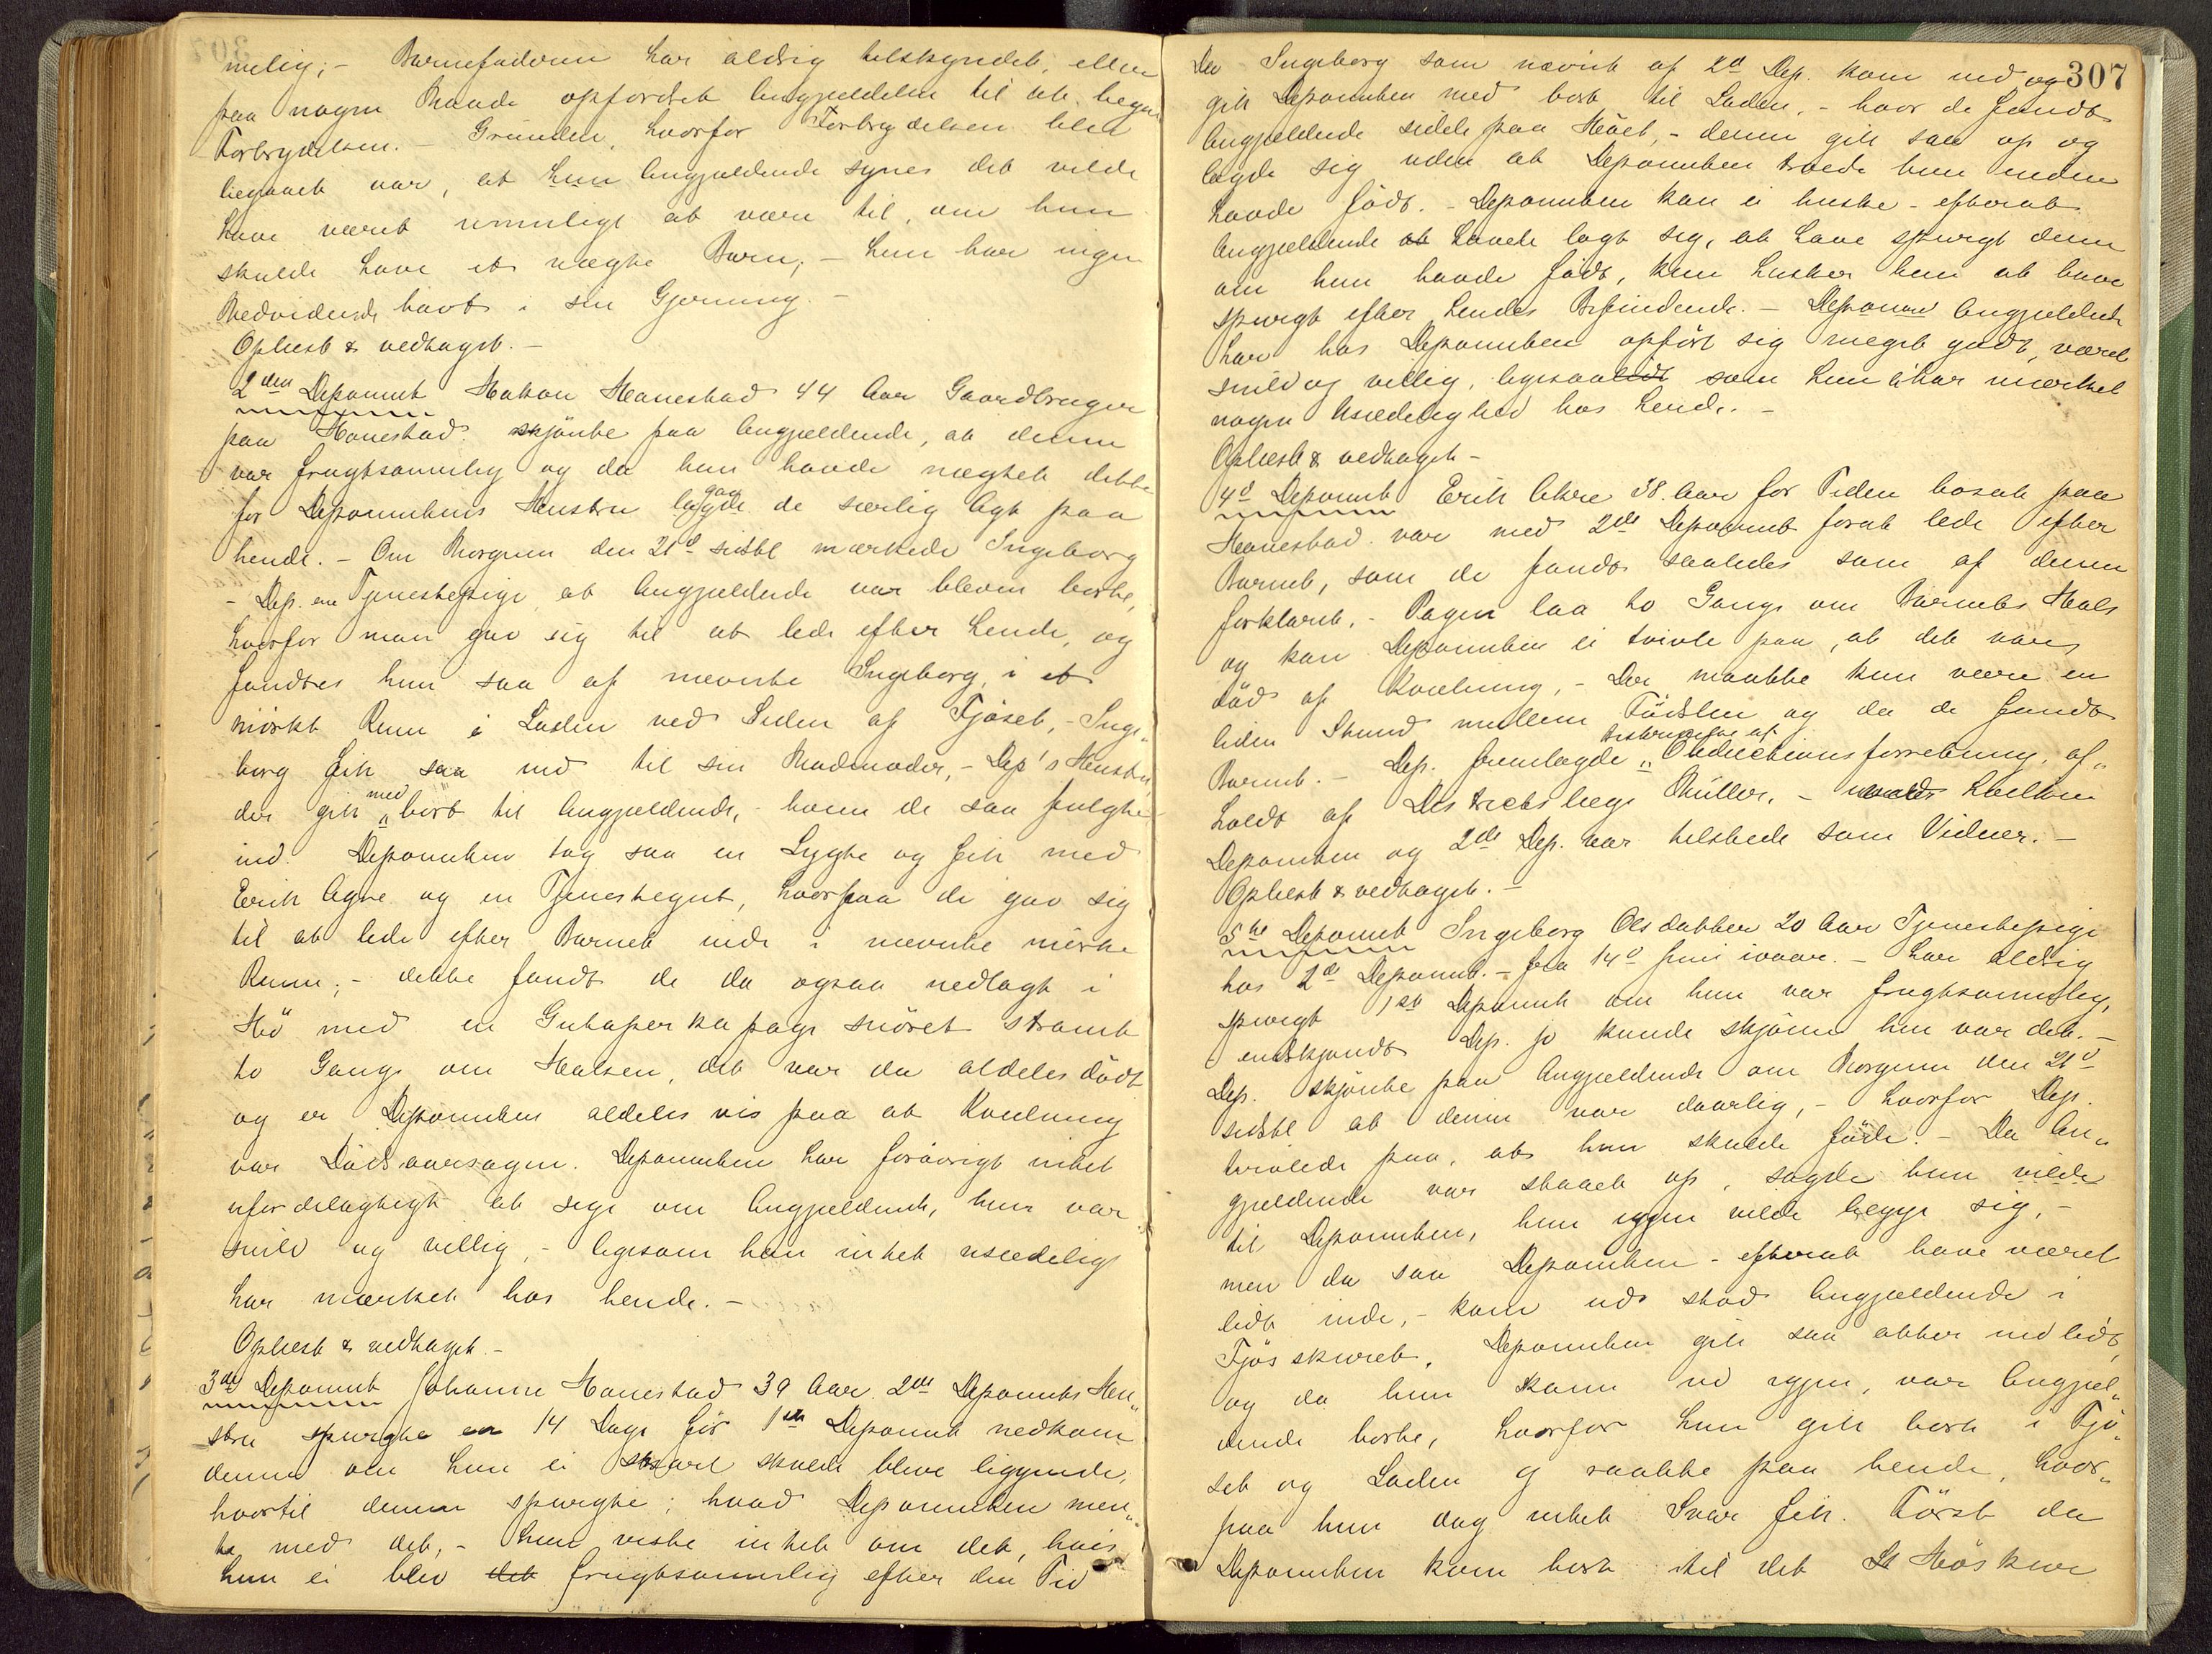 melig; – Barnefaderen har aldrig tilskyndet, eller
paa nogen Maade opfordret Angjældende til at begaa
Forbrydelsen. – Grunden, hvorfor Forbrydelsen blev
begaaet var, at hun Angjældende synes det vilde
have været umuligt at være til, om hun
skulde have et uægte Barn; – hun har ingen
Medvidende havt i sin Gjerning. –
Oplæst & vedtaget. –
2den Deponent Hakon Hanestad 44 Aar Gaardbruger
paa Hanestad skjönte paa Angjældende, at denne
var frugtsommelig og da hun havde nægtet dette
for Deponentens Hustru lagde gav de særlig Agt paa
hende. – Om Morgenen den 21d sidstl mærkede Ingeborg
– Dep. en Tjenestepige at Angjældende var bleven borte,
hvorfor man gav sig til at lede efter hende, og
fandtes hun saa af nævnte Ingeborg, i et
mörkt Rum i Laden ved Siden af Fjöset, – Inge„
borg gik saa ind til sin Madmoder, – Dep's Hustru,
der gik med bort til Angjældende, – hvem de saa fulgte
ind. Deponenten tog saa en Lygte og gik med
Erik Agre og en Tjenestegut, hvorpaa de gav sig
til at lede efter Barnet inde i nævnte mörke
Rum; – dette fandt de da ogsaa nedlagt i
Hö med en Gutaperkapage snöret stramt
to Gange om Halsen, det var da aldeles dödt
og er Deponenten aldeles vis paa at Kvælning
var Dödsaarsagen. Deponenten har forövrigt intet
ufordelagtigt at sige om Angjældende, hun var
snild og villig, – ligesom han intet usædeligt
har mærket hos hende. –
Oplæst & vedtaget. –
3de Deponent Johanne Hanestad 39 Aar. 2den Deponents Hu„
stru spurgte en 14 Dage för 1ste Deponent nedkom
denne om hun ei snart skulde blive liggende,
hvortil denne spurgte; hvad Deponenten men„
te med det, – hun vidste intet om det, hvis
hun ei blev det frugtsommelig efter den Tid
307
Da Ingeborg som nævnt af 2d Dep. kom ind og
gik Deponenten med bort til Laden, – hvor de fandt
Angjældende sidde paa Höet, – denne gik saa op og
lagde sig uden at Deponenten troede hun endnu
havde födt. – Deponenten kan ei huske – efterat
Angjældende at havde lagt sig, at have spurgt denne
om hun havde födt, kun husker hun at have
spurgt efter hendes Befindende. – Deponen Angjældende
har hos Deponenten opfört sig meget godt, været
snild og villig, ligesaalidt som hun har mærket
nogen Usædelighed hos hende. –
Oplæst & vedtaget –
4d Deponent Erik Akre 38 Aar for Tiden bosat paa
Hanestad var med 2de Deponent forat lede efter
Barnet, som de fandt saaledes som af denne
forklaret. – Pagen laa to Gange om Barnets Hals
og kan Deponenten ei tvivle paa, at det var
död af Kvælning, – Der maatte kun være en
liden Stund mellem Födslen og da de fandt
Barnet. – Dep. fremlagde Beskrivelse af „Obductionsforretning, af„
holdt af Districtslæge Müller. – hvilken
Deponenten og 2de Dep. var tilstede som Vidner. –
Oplæst & vedtaget. –
5te Deponent Ingeborg Olsdatter 20 Aar Tjenestepige
hos 2d Deponent. – fra 14d Juni iaar. – har aldrig
spurgt 1ste Deponent om hun var frugtsommelig,
endskjöndt Dep. jo kunde skjönne hun var det. –
Dep. skjönte paa Angjældende om Morgenen den 21d
sidstl at denne var daarlig, – hvorfor Dep.
tvivlede paa, at hun skulde föde. – Da An„
gjældende var staaet op, sagde hun vilde
til Deponenten, hun igjen vilde lægge sig, –
men da saa Deponenten – efterat have været
lidt inde, – kom ud stod Angjældende i
Fjösskuret. Deponenten gik saa atter ind lidt,
og da hun kom ud igjen, var Angjæl„
dende borte, hvorfor hun gik bort i Fjö„
set og Laden og raabte paa hende, hvor„
paa hun dog intet Svar fik. Först da
Deponenten kom bort til det Höskur